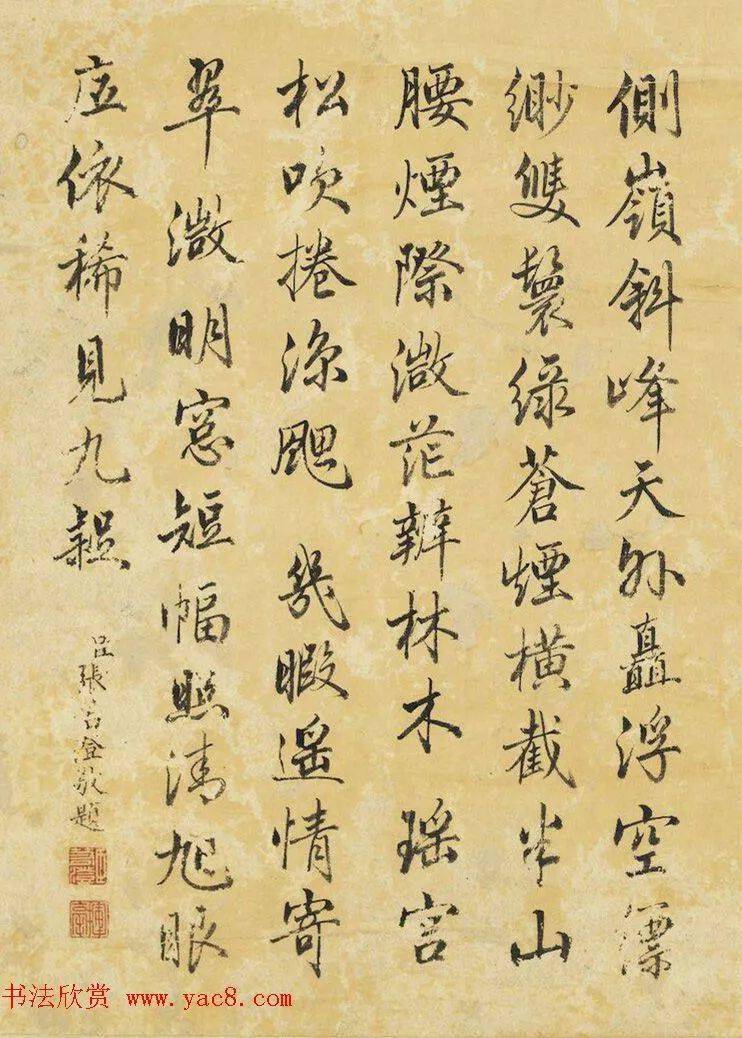 側嶺斜峰天外矗浮空縹
緲雙鬟綠蒼煙橫截半山
腰煙際微茫辨林木瑤宮
松吹捲涼颸幾暇遙情寄
翠微明窗短幅照清旭眼
底依稀見九疑
臣張若澄敬題
书法欣赏 www.yac8.com